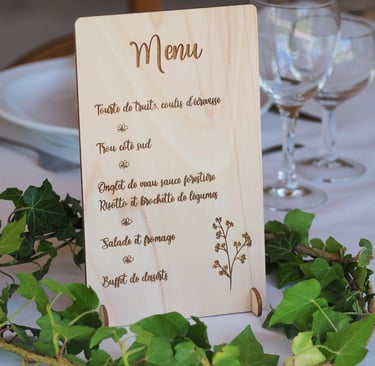 Menu
Tourte de truite, coulis d'écrevisse
Trou côté sud
Onglet de veau sauce forestière
Risotto et brochette de légumes
Salade et fromage
Buffet de desserts